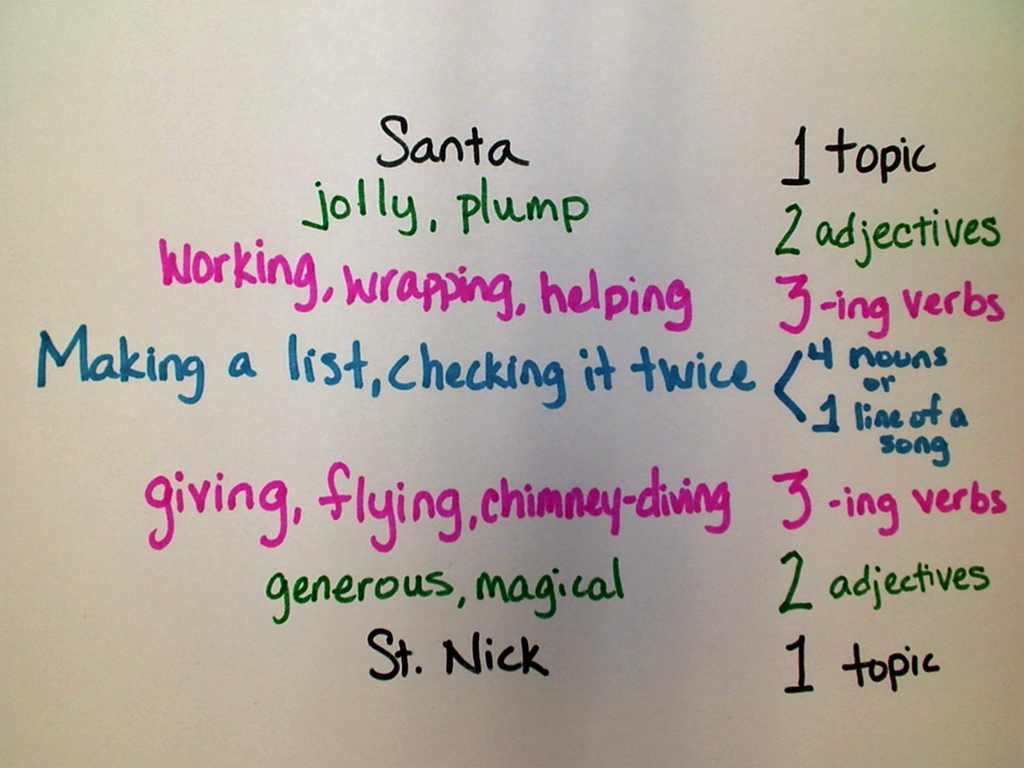 Santa 1 topic
jolly, plump 2 adjectives
Working, wrapping, helping 3 -ing verbs
Making a list, checking it twice < 4 nouns
or
1 line of a
song
giving, flying, chimney-diving 3 -ing verbs
generous, magical 2 adjectives
St. Nick 1 topic